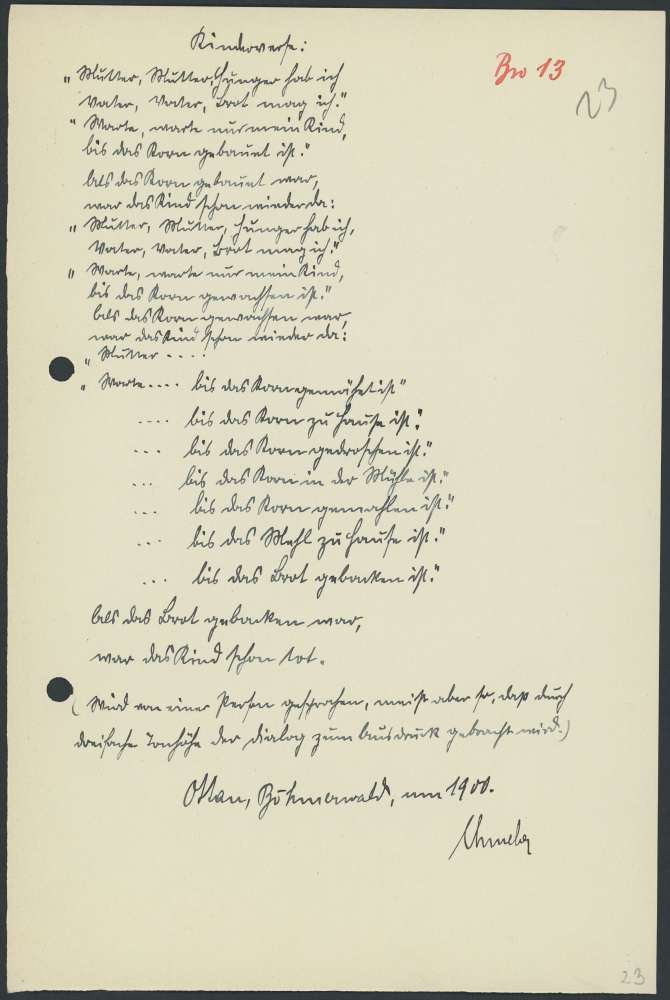 Kinderverse:
Bw 13
23
"Mutter, Mutter, Hunger hab ich
Vater, Vater, Brot mag ich."
"Warte, warte nur mein Kind,
bis das Korn gebaut ist."
Als das Korn gebaut war,
war das Kind schon wieder da:
"Mutter, Mutter, Hunger hab ich,
Vater, Vater, Brot mag ich."
"Warte, warte nur mein Kind,
bis das Korn gewachsen ist."
Als das Korn gewachsen war,
war das Kind schon wieder da:
"Mutter ----
"Warte.... bis das Korn gemäht ist"
.... bis das Korn zu Hause ist."
... bis das Korn gedroschen ist."
... bis das Korn in der Mühle ist."
... bis das Korn gemahlen ist."
... bis das Mehl zu Hause ist."
... bis das Brot gebacken ist."
Als das Brot gebacken war,
war das Kind schon tot.
(Wird von einer Person gesprochen, meist aber so, daß durch
dreifache Tonhöhe der Dialog zum Ausdruck gebracht wird.)
Ottau, Böhmerwald, um 1900.
23